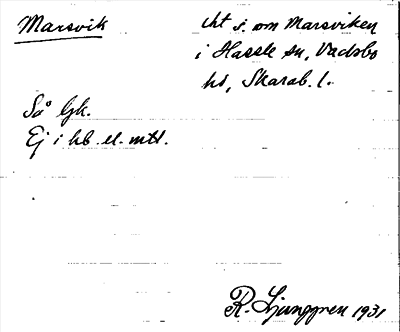 Marsvik
cht s. om Marsviken
i Hassle sn, Vadsbo
hd, Skarab. l.
Så Gk.
Ej i hb. el. mtl.
R. Ljunggren 1931